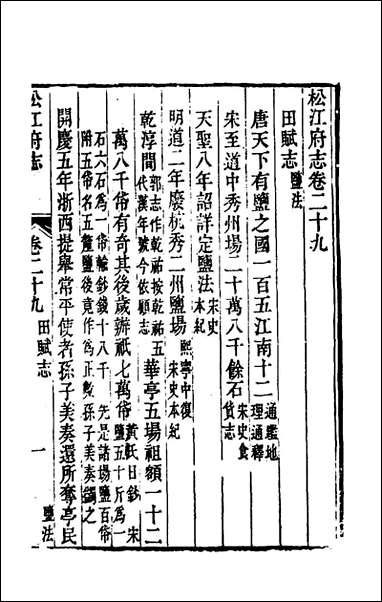 松江府志卷二十九
田賦志 鹽法
唐天下有鹽之國一百五江南十二 通鑑地理通釋
宋至道中秀州場二十萬八千餘石 宋史食貨志
天聖八年詔詳定鹽法 宋史本紀
明道二年廢杭秀二州鹽場 熙寧中復 宋史本紀
乾淳間 郭志作乾祐按乾祐五代漢年號今依顧志 華亭五場祖額一十二
萬八千帣有奇其後歲辦祇七萬帣 黃氏日鈔 宋鹽五十斤爲一
石六石爲一帣輸鈔錢十八千 先是諸場鹽百帣附五帣名五釐鹽後竟作爲正數孫子美奏蠲之
開慶五年浙西提舉常平使者孫子美奏還所奪亭民
松江府志 卷二十九 田賦志 一 鹽法